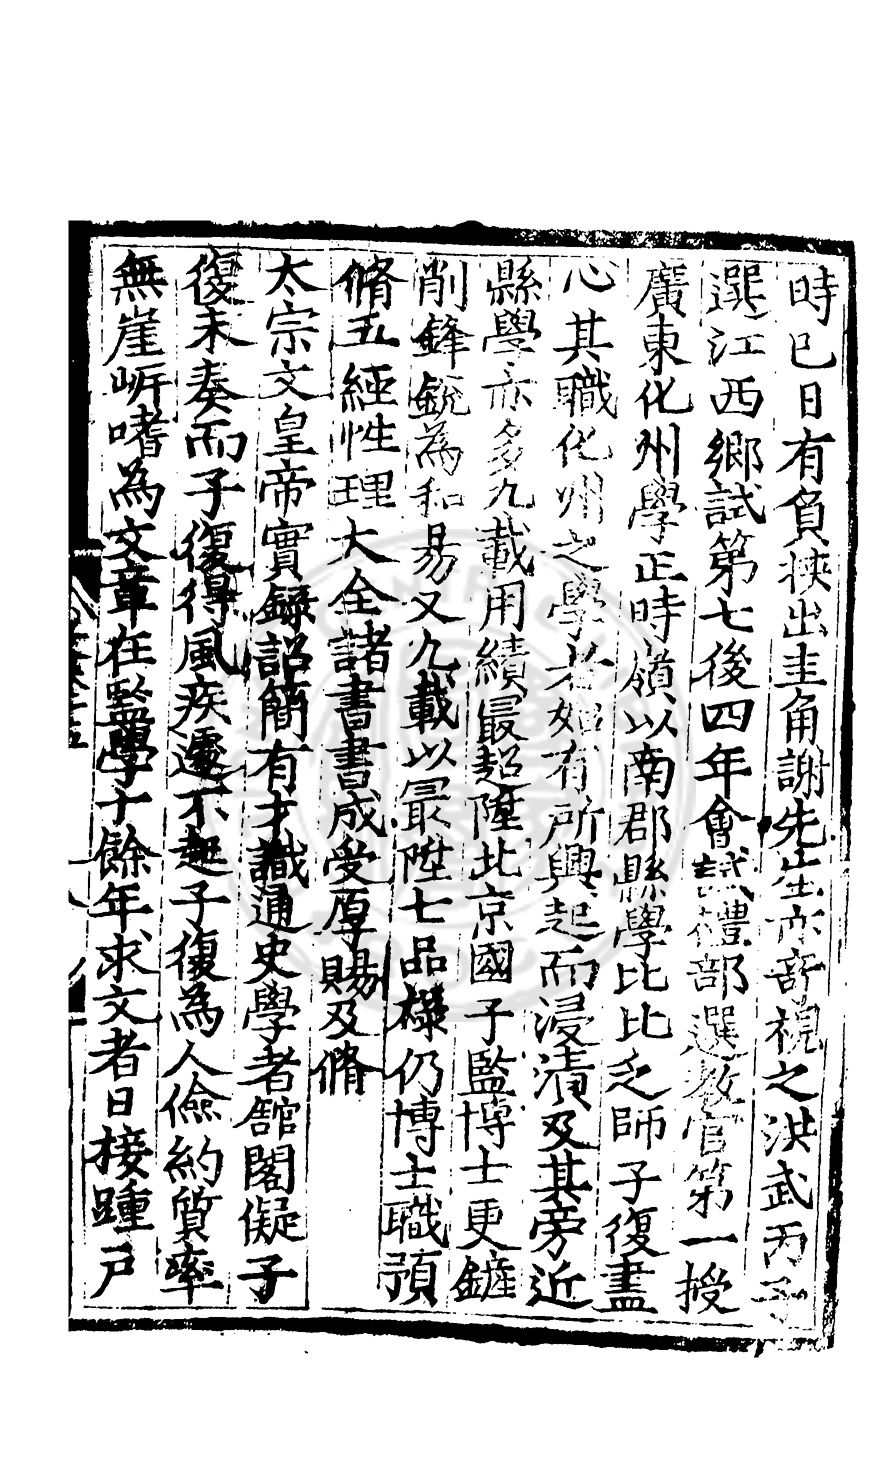 時已日有負挾出圭角謝先生亦奇視之洪武丙子
選江西鄉試第七後四年會試禮部選教官第一授
廣東化州學正時嶺以南郡縣學比比乏師子復盡
心其職化州之學者始有所興起而浸漬及其旁近
縣學亦多九載用績最超陞北京國子監博士更鏟
削鋒銳為和易又九載以最陞七品祿仍博士職預
脩五經性理大全諸書書成受厚賜及脩
太宗文皇帝實録詔簡有才識通史學者舘閣儗子
復未奏而子復得風疾遽不起子復為人儉約質率
無崖岸嗜為文章在監學十餘年求文者日接踵戶